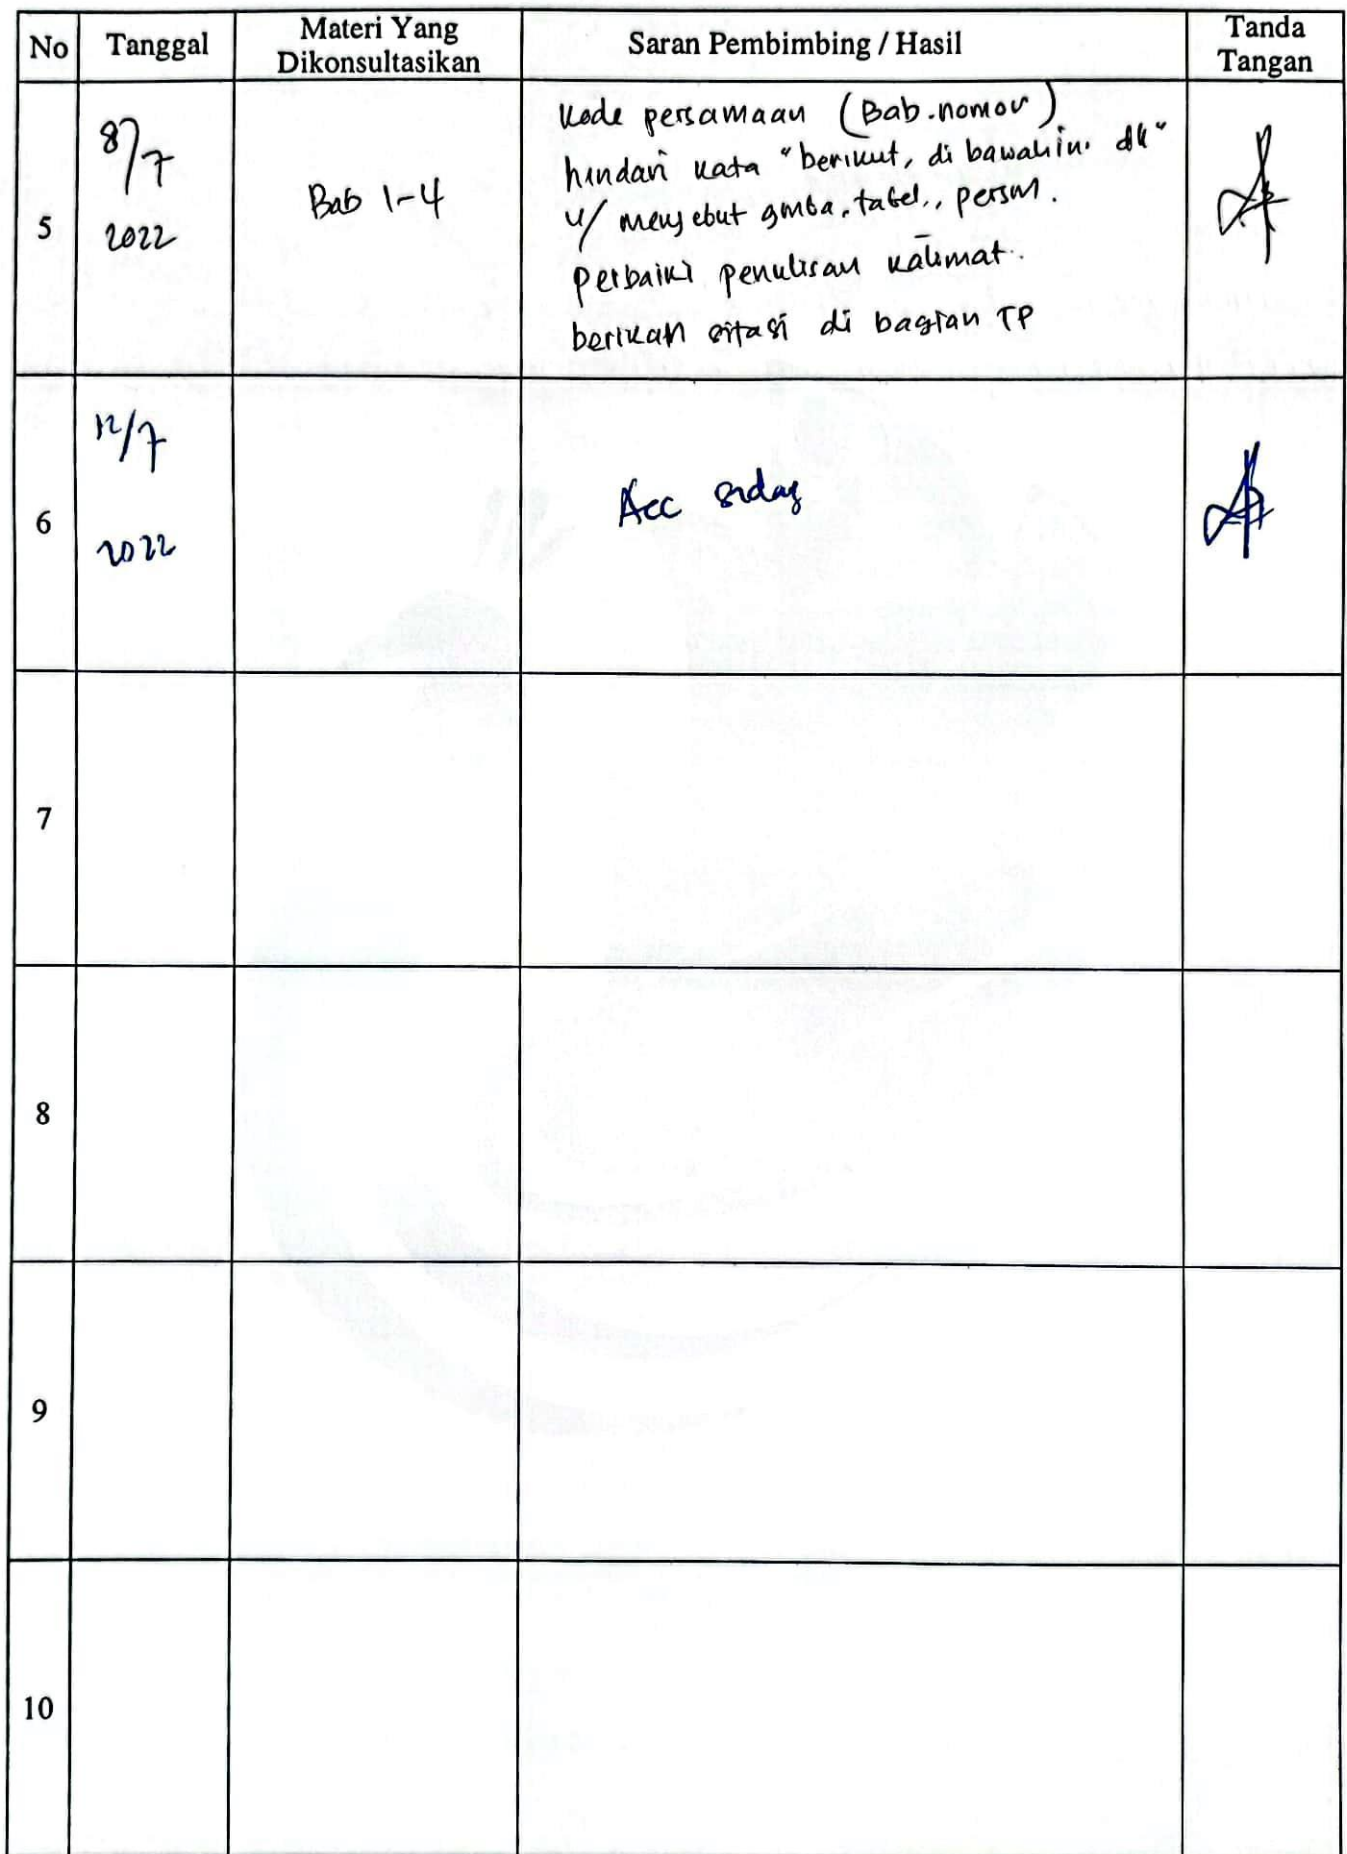 No Tanggal Materi Yang Dikonsultasikan Saran Pembimbing / Hasil Tanda Tangan
5
8/7
2022
Bab 1-4
Kode persamaan (Bab.nomor)
hindari kata "berikut, di bawah ini dll"
u/ menyebut gmba, tabel, persm.
perbaiki penulisan kalimat.
berikan sitasi di bagian TP
6
12/7
2022
Acc sidang
7
8
9
10